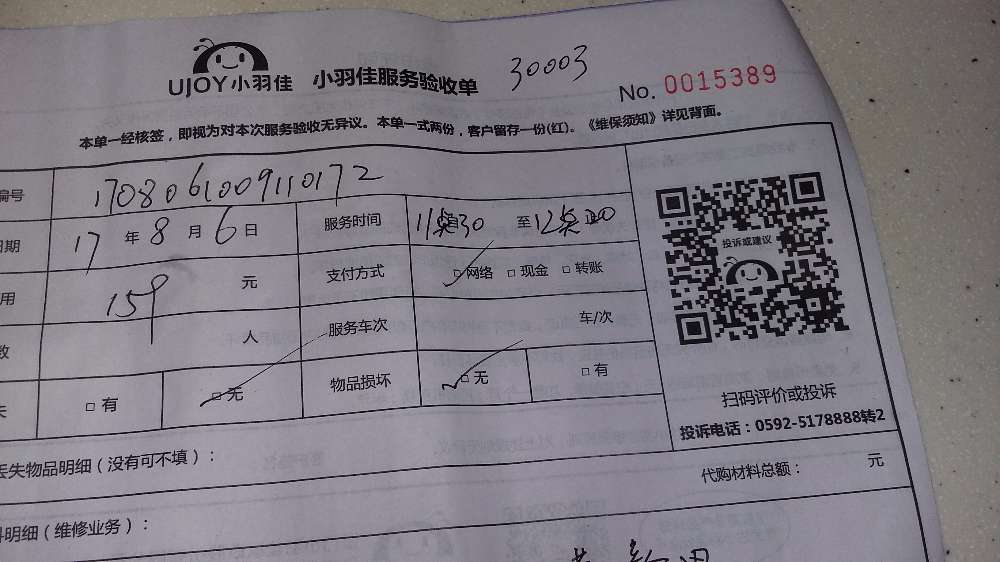 UJOY小羽佳 小羽佳服务验收单 30003 No. 0015389
本单一经核签，即视为对本次服务验收无异议。本单一式两份，客户留存一份(红)。《维保须知》详见背面。
编号 1708061009110172
日期 17 年 8 月 6 日 服务时间 11点30 至 12点
用 159 元 支付方式 网络 现金 转账
数 人 服务车次 车/次
失 有 无 物品损坏 无 有
投诉或建议
扫码评价或投诉
投诉电话：0592-5178888转2
丢失物品明细（没有可不填）：
代购材料总额： 元
料明细（维修业务）：